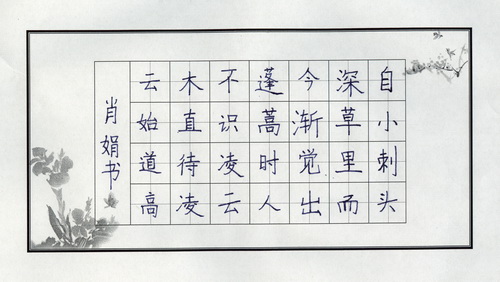 自小刺头
深草里而
今渐觉出
蓬蒿时人
不识凌云
木直待凌
云始道高
肖娟书